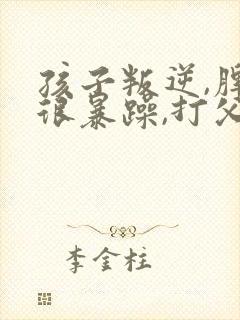 孩子叛逆,脾
很暴躁,打父
李金柱